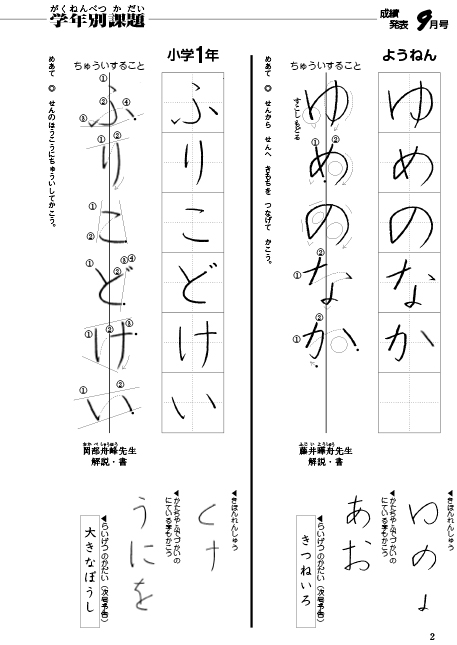 がくねんべつ か だい
学年別課題
成績
発表
9月号
ようねん
ゆめのなか
ちゅういすること
すこしもどる
① ②
① ②
① ②
ゆめのなか
めあて ◎ せんから せんへ きもちを つなげて かこう。
ふじ い ようしゅう
藤井曄舟先生
解説・書
◀きほんれんしゅう
◀かたちや、ふでづかいの
にている字もかこう
あお
◀らいげつのかだい(次号予告)
きつねいろ
小学1年
ふりこどけい
ちゅういすること
① ② ③ ④
① ②
① ②
① ② ③ ④
① ② ③
① ②
ふりこどけい
めあて ◎ せんのほうこうにちゅういしてかこう。
おか べ しゅうほう
岡部舟峰先生
解説・書
◀きほんれんしゅう
◀かたちや、ふでづかいの
にている字もかこう
うにを
◀らいげつのかだい(次号予告)
大きなぼうし
2